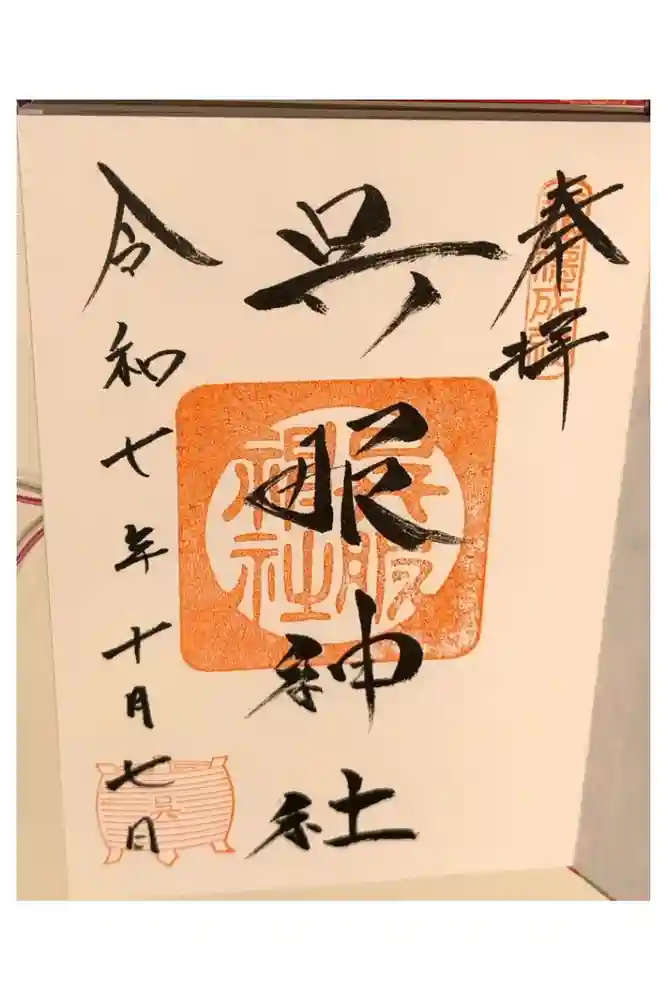 奉拝
呉服神社
呉服神社
令和七年十月七日
呉